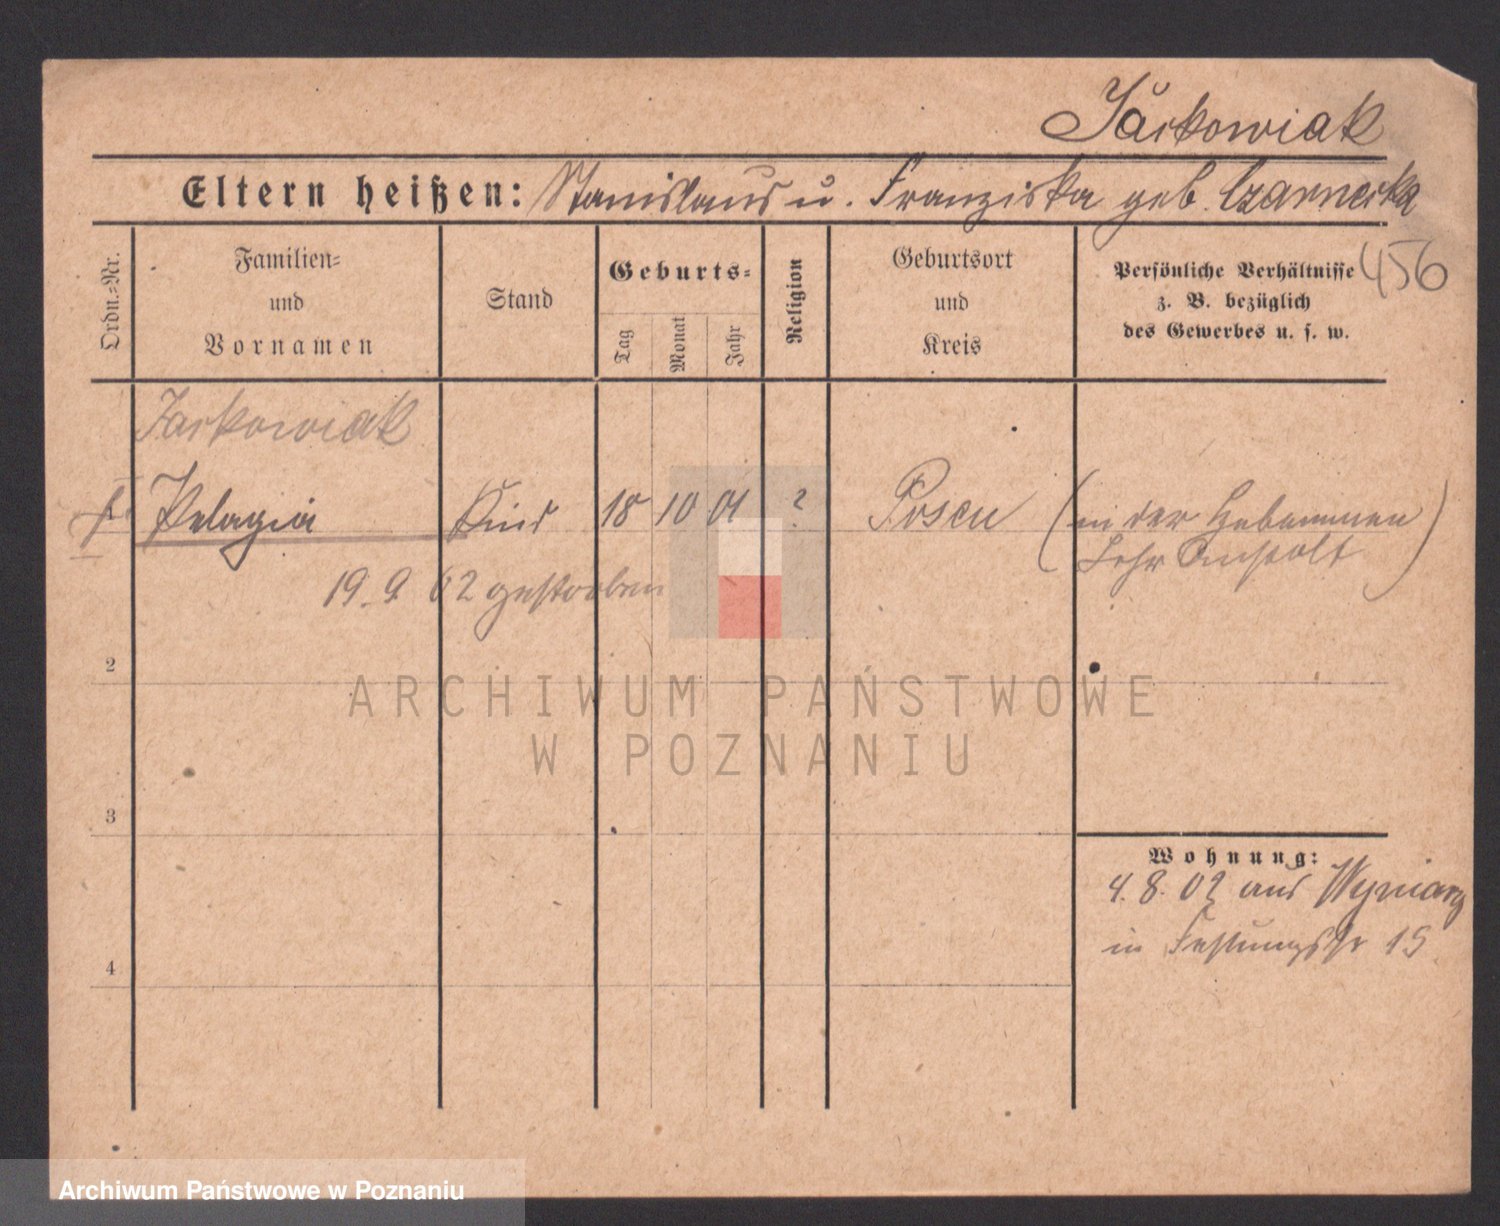 Jarkowiak
Eltern heißen: Stanislaus u. Franziska geb. Czarnecka
456
Ordn.=Nr.
Familien=
und
Vornamen
Stand
Geburts=
Tag
Monat
Jahr
Religion
Geburtsort
und
Kreis
Persönliche Verhältnisse
z. B. bezüglich
des Gewerbes u. s. w.
Jarkowiak
1. Pelagia Kind 18 10 01 ? Posen (in der Hebammen
Lehr Anstalt)
19. 9. 02 gestorben
2
ARCHIWUM PAŃSTWOWE
W POZNANIU
3
Wohnung:
4. 8. 02 aus
in Festungsstr 15
4
Archiwum Państwowe w Poznaniu